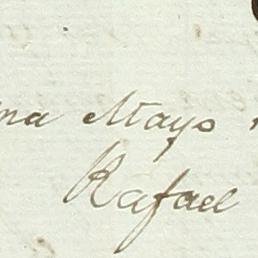 na Mayo
Rafael